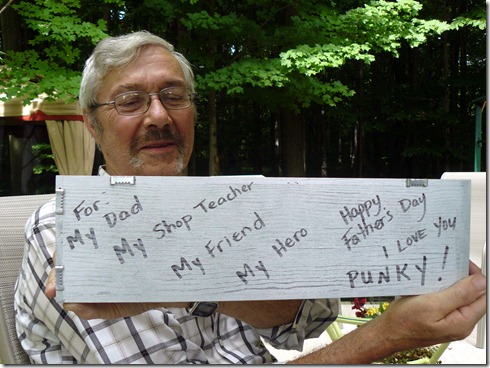 For My Dad
My Shop Teacher
My Friend
My Hero
Happy
Father's Day
I LOVE YOU
PUNKY!